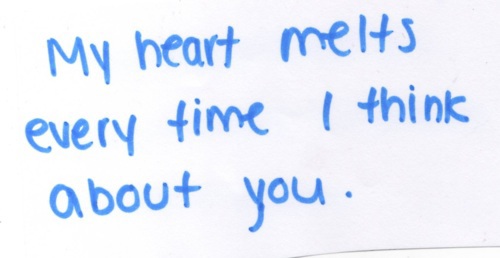 My heart melts
every time I think
about you.